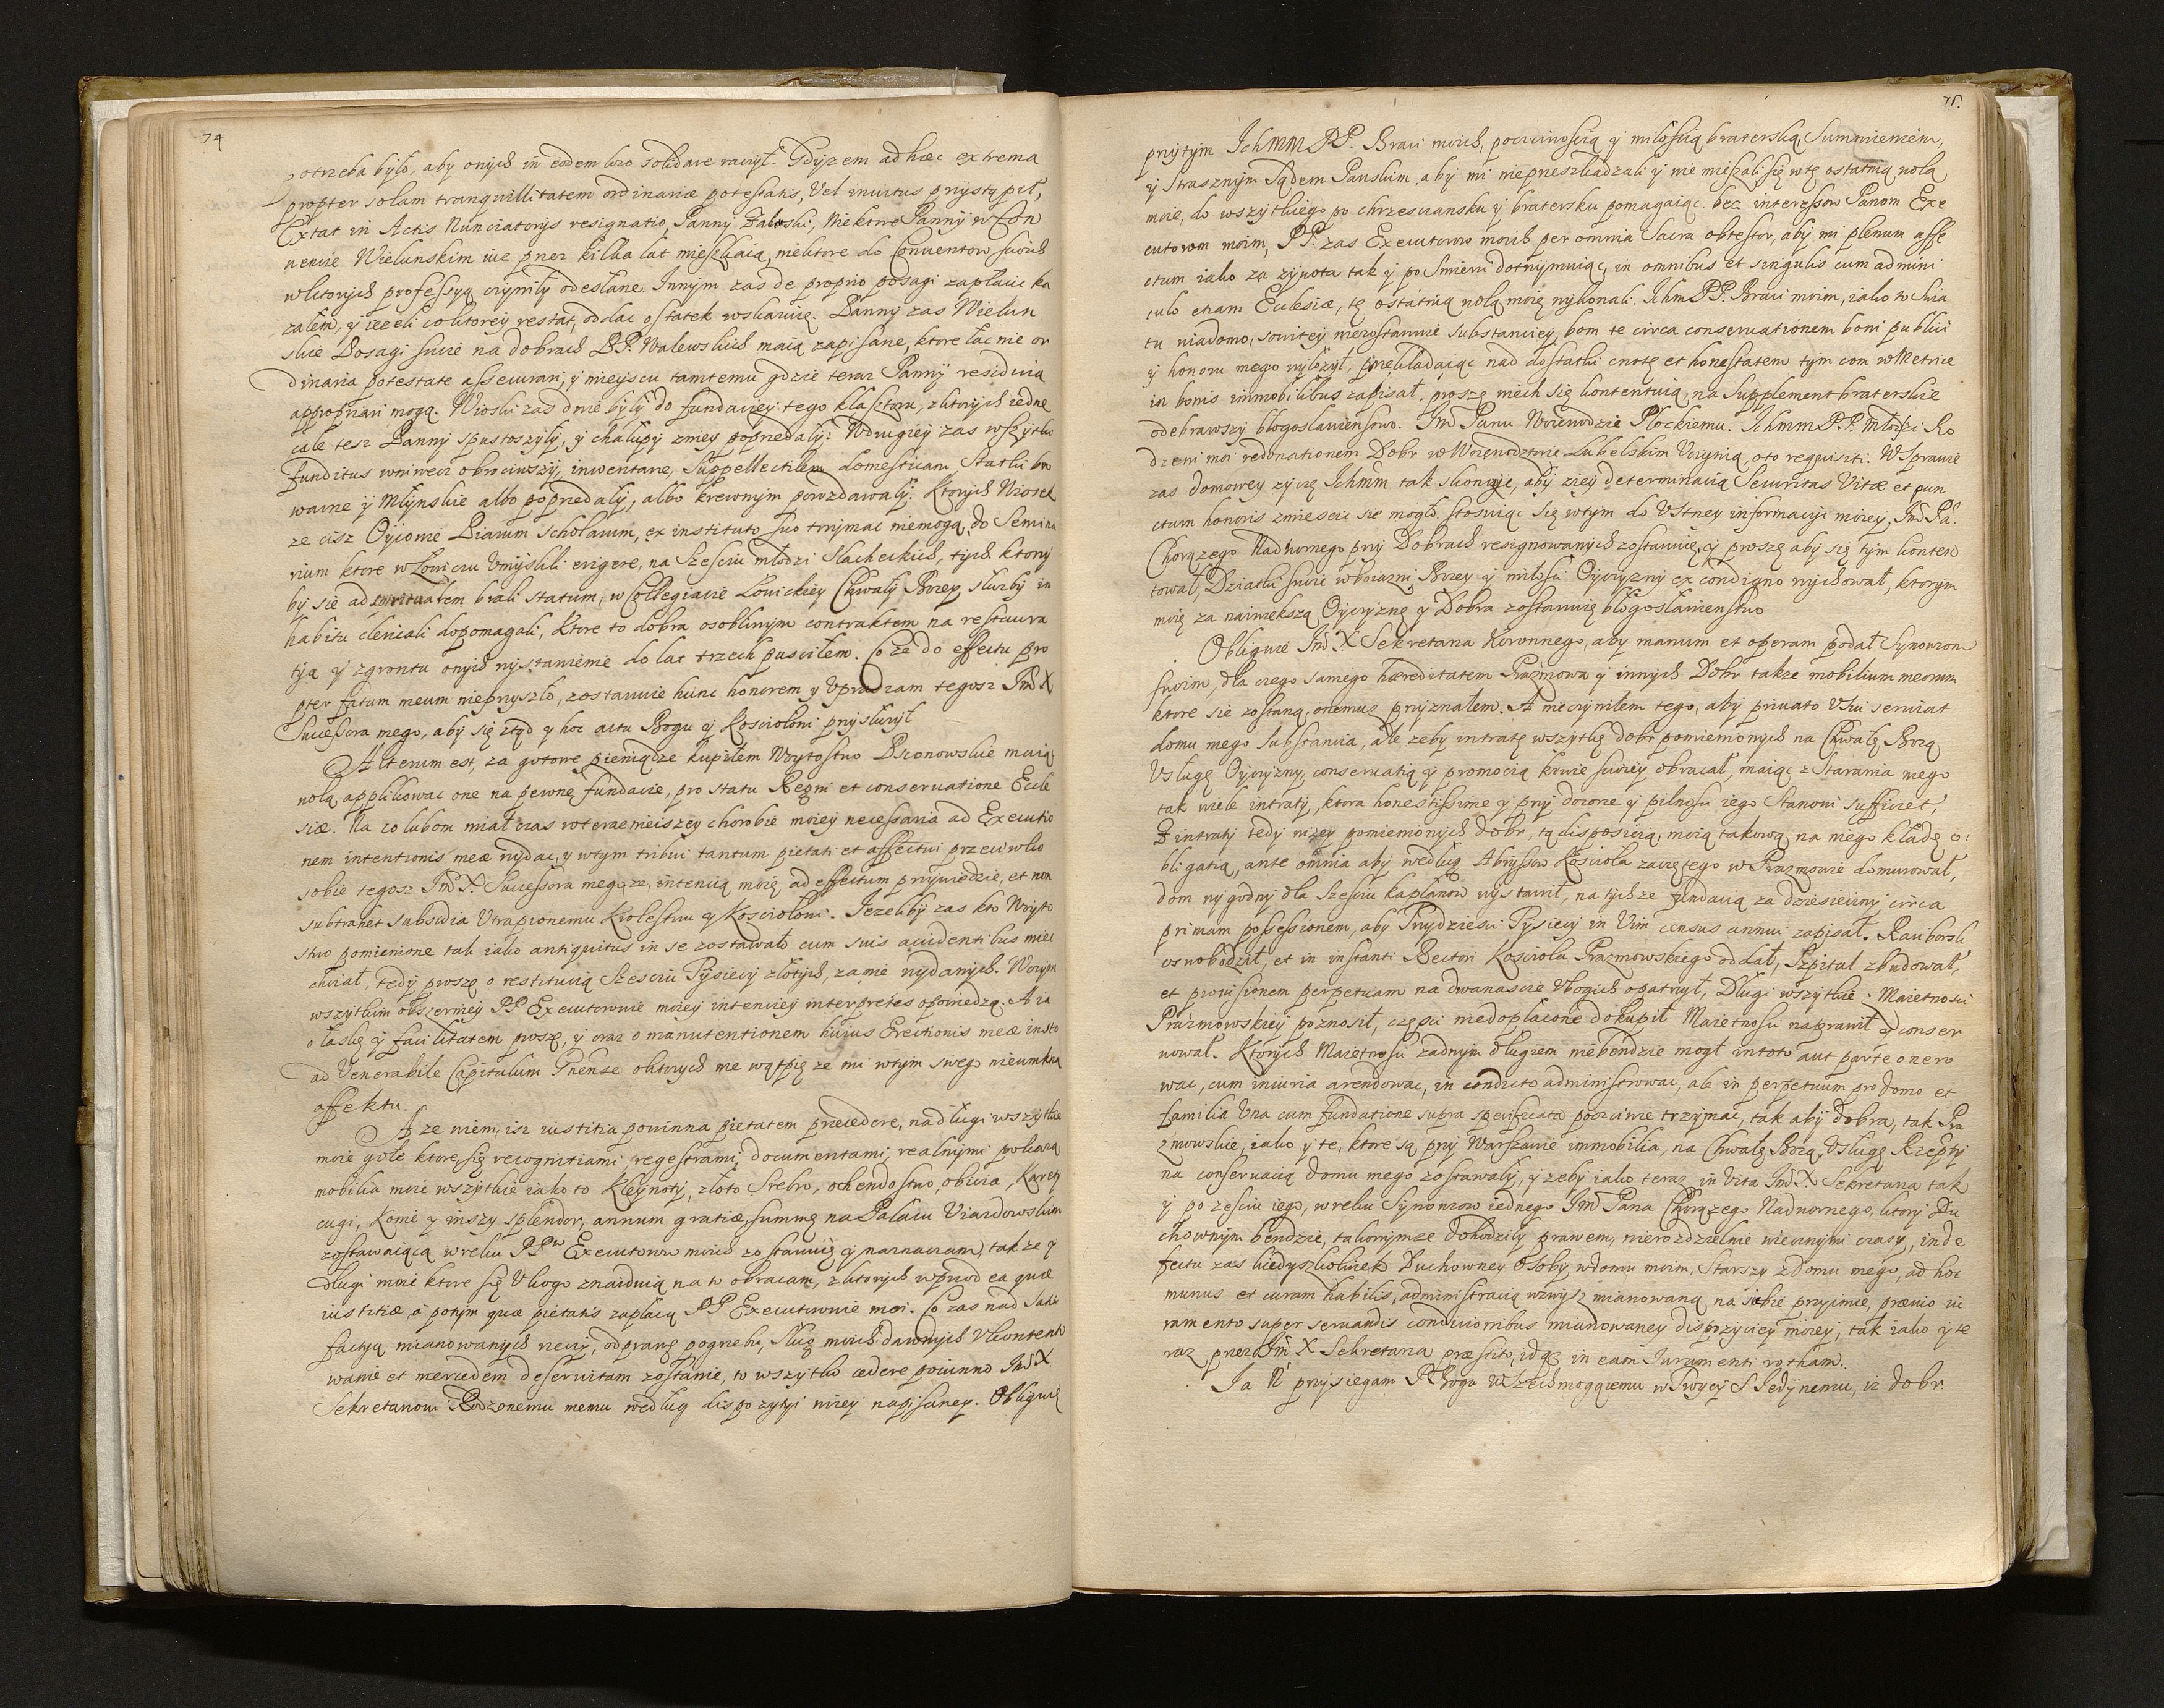 74
potrzeba było, aby onych in eodem loco solidare raczył. Gdyzem ad hæc extrema
propter solam tranquillitatem ordinariæ potestatis, Vel invitus przystąpił,
Extat in Actis Nunciatorys resignatio, Panny Załoski, Niektore Panny w Con
wencie Wielunskim iuz przez kilka lat mieszkaią, niektore do Conventow swoich
w ktorych professyą czyniły odesłane. Innym zas de proprio posagi zapłacic ka
załem, y iezeli co ktorey restat, oddac ostatek wskazuię. Panny zas Wielun
skie Posagi swoie na dobrach PP. Walewskich maią zapisane, ktore łacnie or
dinaria potestate assecurari, y mieyscu tamtemu gdzie teraz Panny residuią
appropriari mogą. Wioski zas dwie były do fundaciey tego klasztoru, z ktorych iedne
cale tesz Panny spustoszyły, y chałupy z niey poprzedały: W drugiey zas wszytko
funditus wniwecz obrociwszy, inwentarze, Suppellectilem domesticam, Statki bro
warne y Młynskie albo poprzedały, albo krewnym porozdawały: Ktorych Wiosek
ze cisz Oycowie Piarum Scholarum, ex instituto suo trzymac niemogą, do Semina
rium ktore w Lowiczu Vmyslili erigere, na szesciu młodzi Slacheckich, tych ktorzy
by sie ad spiritualem brali statum, w Collegiacie Lowickiey Chwały Bozey, słuzby in
habitu clericali dopomagali, Ktore to dobra osobliwym contraktem na restaura
tyą y z gruntu onych wystawienie do lat trzech pusciłem. Co ze do effectu pro
pter fatum meum nieprzyszło, zostawuie hunc honorem y Vpraszam tegosz Jmć X
Successora mego, aby się ztąd y hoc actu Bogu y Kosciołowi przysłuzył
Alterum est, za gotowe pieniądze kupiłem Woytostwo Pszonowskie maiąc
wolą applikowac one na pewne fundacie, pro statu Regni et conservatione Eccle
siæ. Na co lubom miał czas w teraznieiszey chorobie moiey necessaria ad Executio
nem intentionis meæ wydac, y w tym tribui tantum pietati et affectui przeciwko
sobie tegosz Jmć X. Successora mego, ze intencią moię, ad effectum przywiedzie, et non
subtrahet subsidia Vtrapionemu Krolestwu y Kosciołowi. Jezeliby zas kto Woyto
stwo pomienione tak iako antiquitus in se zostawało cum suis accidentibus miec
chciał, tedy proszę o restitucią szesciu Tysiecy złotych, za nie wydanych. W czym
wszytkim obszerniey PP Executorowie moiey intenciey interpretes opowiedzą. A ia
o łaskę y facilitatem proszę, y oraz o manutentionem huius Erectionis meæ insto
ad Venerabile Capitulum Gnense o ktorych nie wątpię ze mi w tym swego nieumkną
affektu.
A ze wiem, isz iustitia powinna pietatem præcedere, na długi wszytkie
moie gołe ktore się recognitiami, regestrami, documentami, realnymi pokazą
mobilia moie wszytkie iako to Kleynoty, złoto Srebro, ochendostwo, obicia, Karety
cugi, Konie y inszy splendor, annum gratiæ, summę na Pałacu Viazdowskim
zostawaiącą w ręku PPw Executorow moich zostawuię y naznaczam, takze y
długi moie ktore się Vkogo znaiduią na to obracam, z ktorych wprzod ea quæ
iustitiæ, a potym quæ pietatis zapłacą PP Executorowie moi. Co zas nad satis
factyą mianowanych rzeczy, odprawę pogrzebu, sług moich dawnych Vkontento
wanie et mercedem deservitam zostanie, to wszytko cedere powinno Jmć X.
Sekretarzowi Rodzonemu memu według dispozytyi nizey napisaney. Obliguię
75.
przytym JchMM PP. Braci moich, poczciwoscią y miłoscią braterską, Summieniem,
y Strasznym Sądem Panskim, aby mi nieprzeszkadzali y nie mieszali się w tę ostatnią wolą
moie, do wszytkiego po chrzesciansku y bratersku pomagaiąc bez interessow Panom Exe
cutorom moim, PP. zas Executorow moich per omnia Sacra obtestor, aby mi plenum affe
ctum iako za zywota tak y po smierci dotrzymuiąc, in omnibus et singulis cum admini
culo etiam Ecclesiæ, tę ostatnią wolą moię wykonali. JchM PP. Braci moim, iako to Swia
tu wiadomo, sowitey niezostawuie substanciey, bom te circa conservationem boni publici
y honoru mego wyłozył, przekładaiąc nad dostatki cnotę et honestatem tym com w Metrice
in bonis immobilibus zapisał, proszę niech się kontentuią, na Supplement braterskie
odebrawszy błogosławienstwo. Jmć Panu Woiewodzie Płockiemu. JchMM P.P. Młodzi Ro
dzeni moi redonationem Dobr w Woiewodztwie Lubelskim Vczynią, oto requisiti. W Sprawie
zas domowey zyczę Jchmm tak skonczyc, aby z iey determinacią Securitas Vitæ et pun
ctum honoris zmiescic sie mogło. Stosuiąc się w tym do Vstney informacyi moiey, Jmć Pa.
Chorązego Nadwornego przy Dobrach resignowanych zostawuię, y proszę aby się tym konten
tował, Dziatki swoie w boiazni Bozey y miłosci Oyczyzny ex condigno wychował, ktorym
moię za naiwiekszą Oyczyznę y Dobra zostawuię błogosławienstwo
Obliguie Jmć X Sekretarza Koronnego, aby manum et operam podał Synowcom
swoim, dla czego samego hæreditatem Prazmowa y innych Dobr takze mobilium meorum
ktore sie zostaną, onemus przyznałem. A nieczyniłem tego, aby privato Vsui serviat
domu mego substancia, ale zeby intratę wszytkę dobr pomienionych na Chwałę Bozą
Vsługę Oyczyzny, conservatią y promocią krwie swoiey obracał, maiąc z Starania mego
tak wiele intraty, ktora honestissime y przy dozorze y pilnosci iego Stanowi sufficiet.
Z intraty tedy nizey pomienionych dobr, tą disposicią moią takową na niego kładę o:
bligatią, ante omnia aby według Abryssow Kosciola zaczętego w Prazmowie domurował,
dom wygodny dla szesciu kapłanow wystawił, na tychze fundacią za dziesieciny circa
primam possessionem, aby Trzydziesci Tysiecy in Vim census annui zapisał. Rauborsk
oswobodził, et in instanti Rectori Kosciola Prazmowskiego oddał, Szpital zbudował,
et provisionem perpetuam na dwanascie Vbogich opatrzył, Długi wszytkie z Maietnosci
Prazmowskiey poznosił, części niedopłacone dokupił Maietnosci naprawił y conser
wował. Ktorych Maietnosci zadnym długiem niebendzie mogł in toto aut parte onero
wac, cum iniuria arendowac, in conducto administrowac, ale in perpetuum pro domo et
familia Vna cum fundatione supra specificata poczciwie trzymac, tak aby dobra, tak Pra
zmowskie, iako y te, ktore są przy Warszawie immobilia, na Chwałę Bozą, Vsługę Rzeptey
na conservacią domu mego zostawały, y zeby iako teraz in Vita Jmć X. Sekretarza tak
y po zesciu iego, w ręku Synowcow iednego Jmć Pana Chorązego Nadwornego, ktory Du
chownym bendzie, takowymze dochodziły prawem, nierozdzielnie wiecznymi czasy, in de
fectu zas kiedyszkolwiek Duchowney Osoby w domu moim, Starszy z domu mego, ad hoc
munus et curam habilis, administracią wzwysz mianowaną na siebie przyimie, prævio iu
ramento super servandis conditionibus mianowaney dispozyciey moiey, tak iako y te
raz przez Jmć X Sekretarza præstito, idq in eam Juramenti rotham.
Ja N przysiegam P Bogu Wszechmogącemu w Troycy S Jedynemu, iz dobr